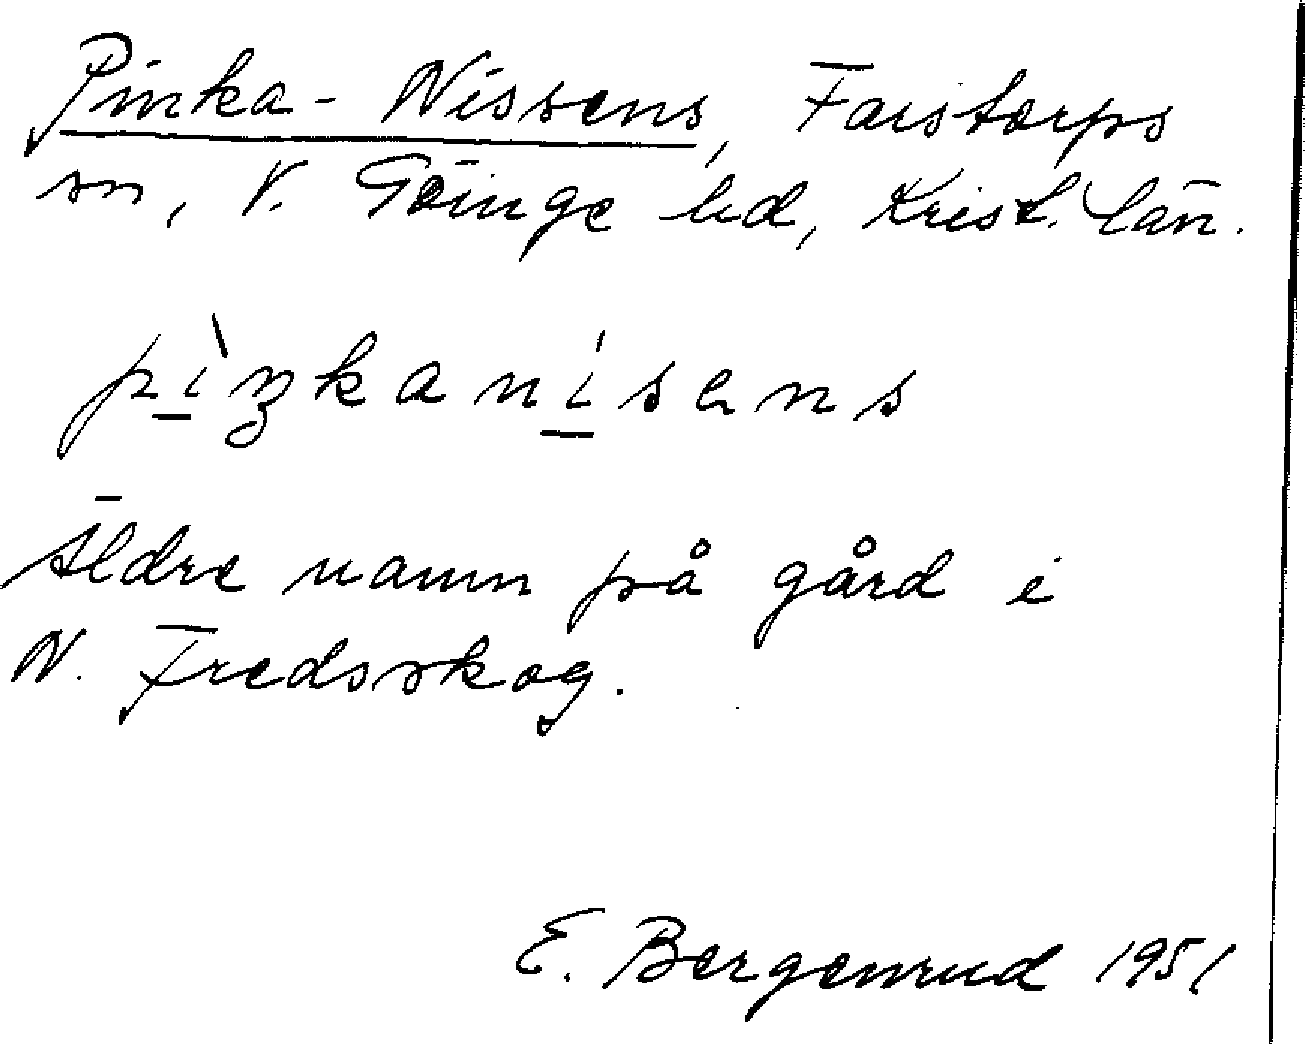 Pinka-Nissens, Farstorps
sn, V. Göinge hd, Krist. län.
pìŋkanísens
Äldre namn på gård i
N. Fredsskog.
E. Bergenrud 1951